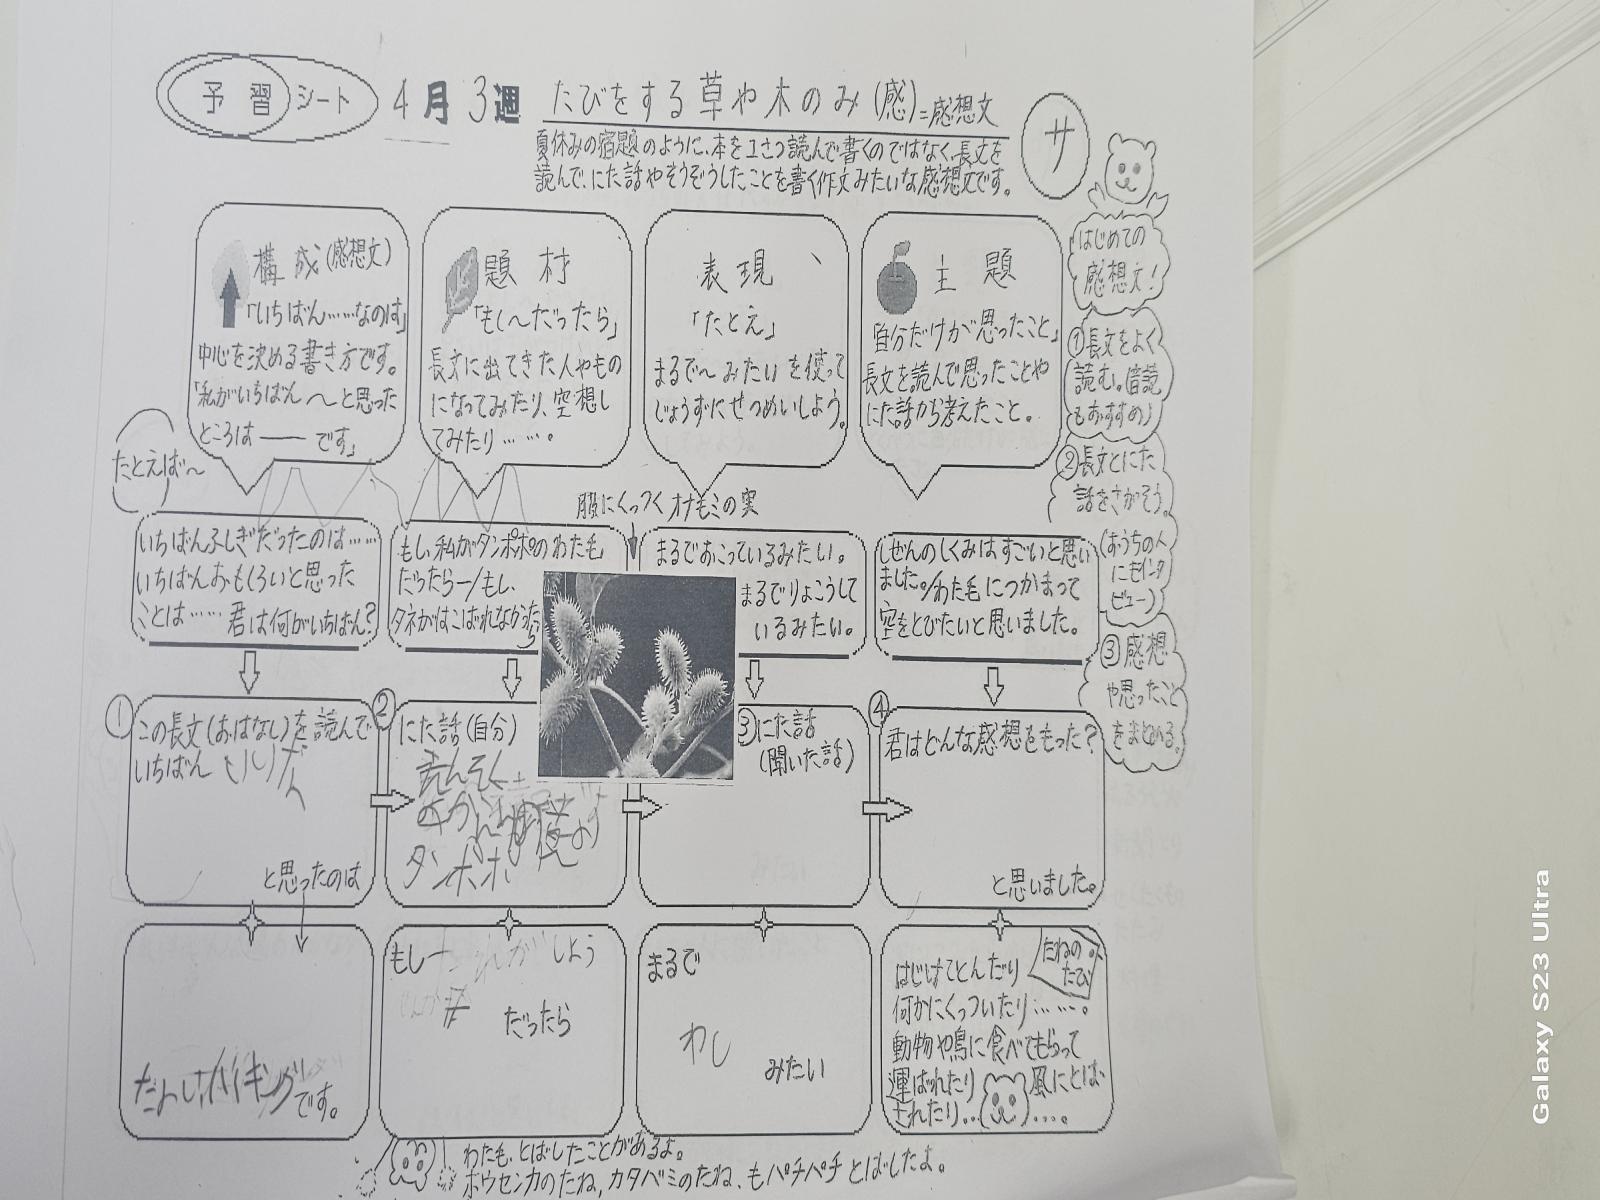 予習シート 4月3週 たびをする草や木のみ(感)=感想文
サ
夏休みの宿題のように、本を1さつ読んで書くのではなく、長文を
読んで、にた話やそうぞうしたことを書く作文みたいな感想文です。
構成(感想文)
「いちばん……なのは」
中心を決める書き方です。
「私がいちばん〜と思った
ところは――です」
題材
「もし〜だったら」
長文に出てきた人やもの
になってみたり、空想し
てみたり……。
表現
「たとえ」
まるで〜みたいを使って
じょうずにせつめいしよう。
主題
「自分だけが思ったこと」
長文を読んで思ったことや
にた話から考えたこと。
はじめての
感想文!
①長文をよく
読む。(音読
もおすすめ)
②長文とにた
話をさがそう。
(おうちの人
にもインタ
ビュー)
③感想
や思ったこと
をまとめる。
たとえば〜
いちばんふしぎだったのは……
いちばんおもしろいと思った
ことは……君は何がいちばん?
もし、私がタンポポのわた毛
だったら―/もし、
タネがはこばれなかったら
服にくっつくオナモミの実
まるでおこっているみたい。
まるでりょこうして
いるみたい。
しぜんのしくみはすごいと思い
ました。/わた毛につかまって
空をとびたいと思いました。
①この長文(おはなし)を読んで
いちばん
と思ったのは
です。
②にた話(自分)
タンポポ
もし
だったら
③にた話
(聞いた話)
まるで
わし
みたい
④君はどんな感想をもった?
と思いました。
たねの
たび
はじけてとんだり
何かにくっついたり……。
動物や鳥に食べてもらって
運ばれたり 風にとば
されたり……。
わた毛、とばしたことがあるよ。
ホウセンカのたね、カタバミのたね、もパチパチとばしたよ。
Galaxy S23 Ultra